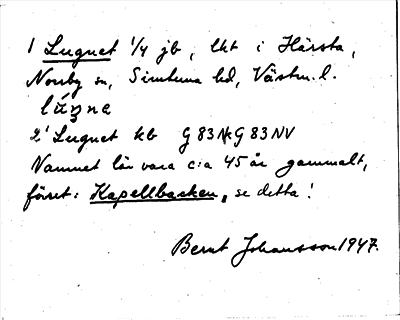 1 Lugnet 1/4 jb, lht i Härsta,
Norrby sn, Simtuna hd, Västm. l.
2' Lugnet kb G 83 NV
Namnet lär vara c:a 45 år gammalt,
förut: Kapellbacken, se detta!
Bernt Johansson 1947.